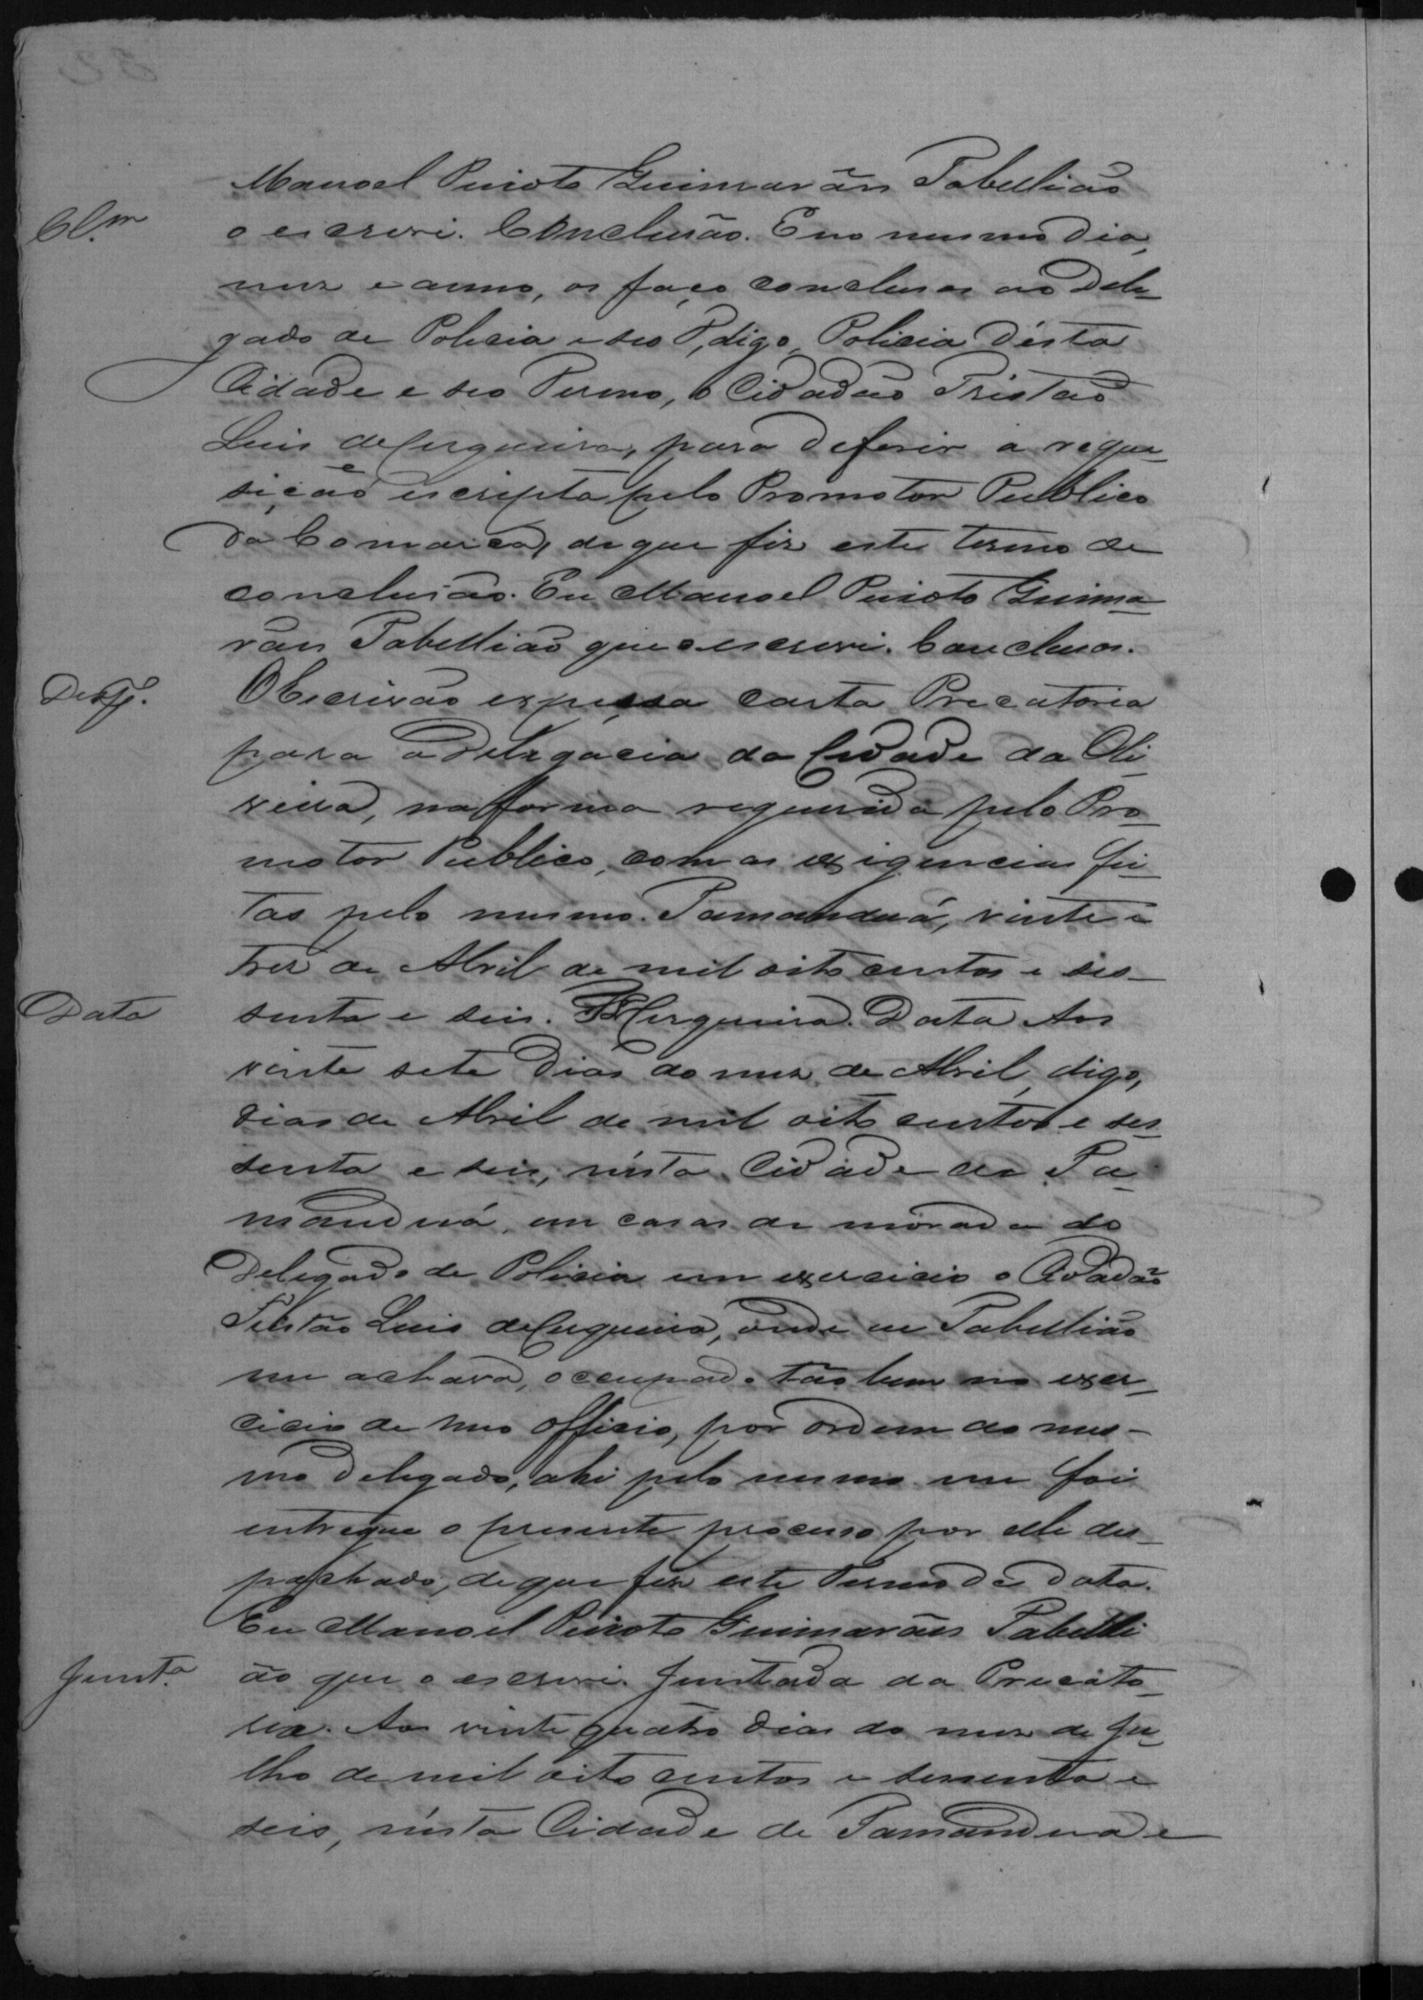 Manoel Peixoto Guimarães Tabellião
Cl.m
o escrevi. Conclusão. E no mesmo dia,
mez e anno, os faço conclusos ao Dele-
gado de Policia e seo P, digo, Policia désta
Cidade e seo Termo, o Cidadão Tristão
Luis de Cerqueira, para deferir a requi-
sição escripta pelo Promotor Publico
da Comarca, de que fiz este termo de
conclusão. Eu Manoel Peixoto Guima-
rães Tabellião que o escrevi. Conclusos.
Desp.º
O Escrivão expessa carta Precatoria
para a Delegacia da Cidade da Oli-
veira, na forma requerida pelo Pro-
motor Publico, com as exigencias fei-
tas pelo mesmo. Tamanduá, vinte e
tres de Abril de mil oito centos e ses-
senta e seis. Cerqueira. Data Aos
Data
vinte sete dias do mez de Abril, digo,
dias de Abril de mil oito centos e ses-
senta e seis, nésta Cidade de Ta-
manduá, em casas de morada do
Delegado de Policia em exercicio o Cidadão
Tristão Luis de Cerqueira, onde eu Tabellião
me achava, occupado tão bem no exer-
cicio de meo officio, por ordem do mes-
mo Delegado, ahi pelo mesmo me foi
entregue o presente processo por elle des-
pachado, de que fiz este Termo de data.
Eu Manoel Peixoto Guimarães Tabelli
Junt.a
ão que o escrevi. Juntada da Precato-
ria. Aos vinte quatro dias do mez de Ju-
lho de mil oito centos e sessenta e
seis, nésta Cidade de Tamanduá e